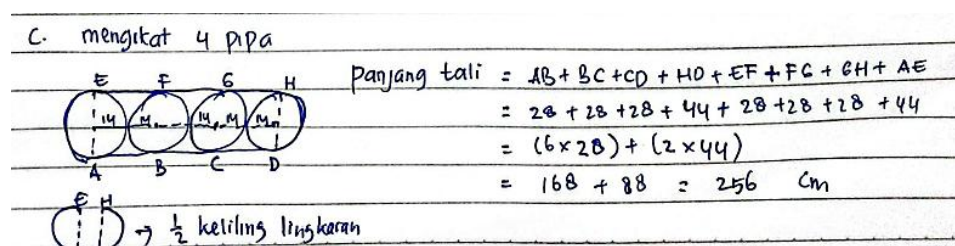 C. mengikat 4 pipa
E F G H
14 14 14 14 14
A B C D
Panjang tali = AB + BC + CD + HD + EF + FG + GH + AE
= 28 + 28 + 28 + 44 + 28 + 28 + 28 + 44
= (6 x 28) + (2 x 44)
= 168 + 88 = 256 cm
E H
→ 1/2 keliling lingkaran